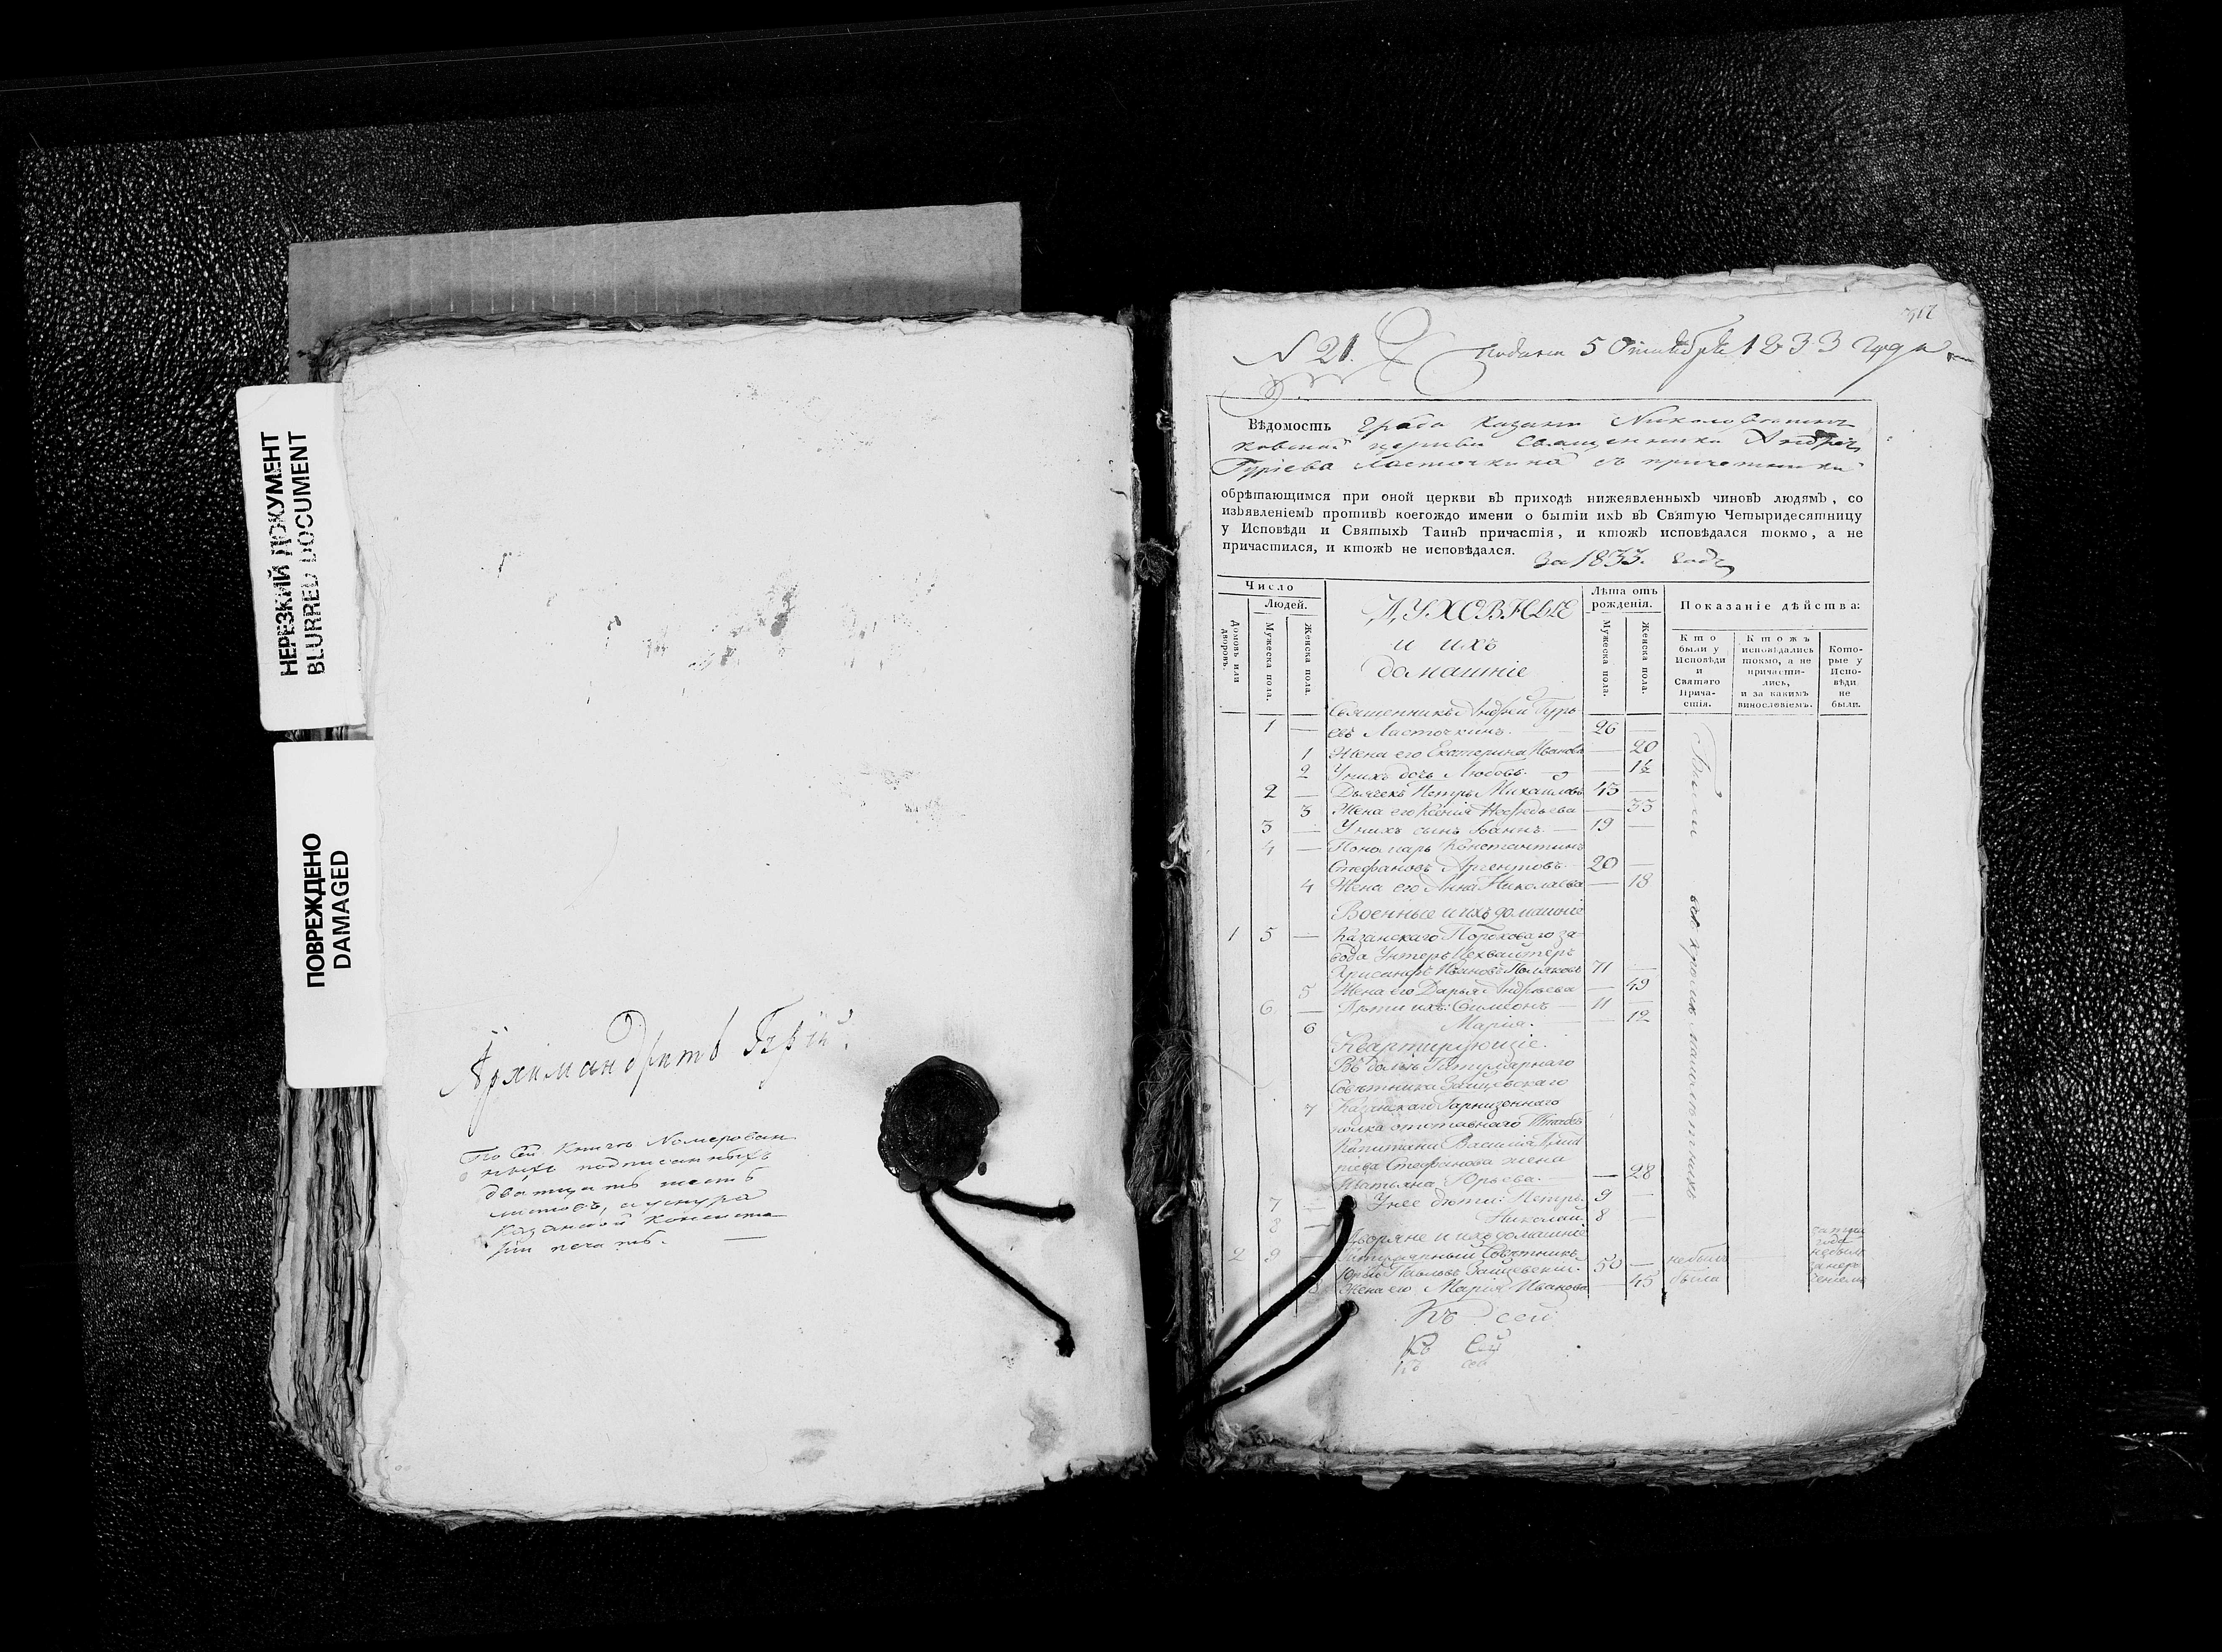 НЕРЕЗКИЙ ДОКУМЕНТ
BLURRED DOCUMENT
ПОВРЕЖДЕНО
DAMAGED
Архимандритъ
По сей Книгѣ Номерован
ныхъ подписанныхъ
дватцать шесть
листовъ, а шнура
Казанской Консисто
ріи печать.
N 21. Подана 5 Октября 1833 года
Вѣдомость Града Казани
церкви Священника Андрея
Гуріева Ласточкина съ причетники
обрѣтающимся при оной церкви въ приходѣ нижеявленныхъ чиновъ людямъ, со
изъявленіемъ противъ коегождо имени о бытіи ихъ въ Святую Четыридесятницу
у Исповѣди и Святыхъ Таинъ причастія, и ктожъ исповѣдался токмо, а не
причастился, и ктожъ не исповѣдался.
За 1833. годъ
Число
Домовъ или дворовъ.
Людей.
Мужеска пола.
Женска пола.
ДУХОВНЫЕ
и ихъ
домашніе
Лѣта отъ рожденія.
Мужеска пола.
Женска пола.
Показаніе дѣйства:
Кто были у Исповѣди и Святаго Причастія.
Ктожъ исповѣдались токмо, а не причастились, и за какимъ винословіемъ.
Которые у Исповѣди не были.
Священникъ Андрей Гурь
1 — евъ Ласточкинъ. 26 —
1 Жена его Екатерина Иванова — 20
2 У нихъ дочь Любовь. — — 1½
2 — Дьячекъ Петръ Михайловъ 45 —
3 Жена его Ксенія Нефедьева — 33
3 — У нихъ сынъ Іоаннъ. — 19 —
4 — Пономарь Константинъ
Стефановъ Аргентовъ. 20 —
4 Жена его Анна Николаева — 18
Военные и ихъ домашніе
1 5 — Казанскаго Пороховаго за
вода Унтеръ
Хрисанфъ Ивановъ Поляковъ 71 —
5 Жена его Дарья Андреева — 49
6 — Дѣти ихъ: Симеонъ — 11 —
6 Марія. — 12
Квартирующіе.
Въ домѣ Титулярнаго
Совѣтника Зайцевскаго
7 Казанскаго Гарнизоннаго
полка отставнаго Штабсъ
Капитана Василія
Стефанова жена
Татьяна Юрьева. — — 28
7 — У нее дѣти: Петръ. 9 —
8 — Николай. 8 —
Дворяне и ихъ домашніе
2 9 — Титулярный Совѣтникъ
Юрій Зайцевскій. 50 — не былъ
8 Жена его Марія Иванова — 45 была
Были всѣ кромѣ малолѣтнихъ
Къ сей
Къ сей
Къ сей